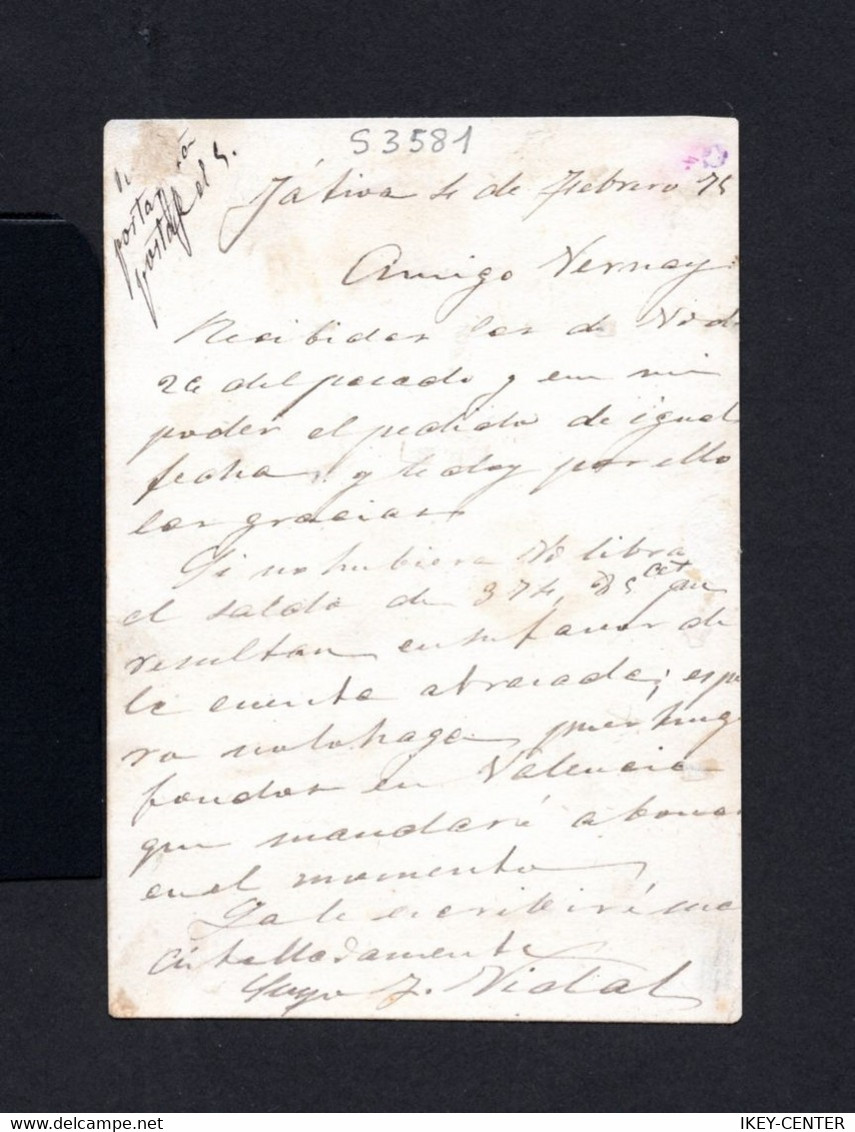 S3581
Játiva 4 de Febrero 75
Amigo Vernay
Recibidas las de Vd
26 del pasado y en mi
poder el pedido de igual
fecha y le doy por ello
las gracias
Si no hubiera Vd libra
el saldo de 374, 85 cet que
resultan en su favor de
la cuenta atrasada; espe
ro no lo haga, pues tengo
fondos en Valencia
que mandaré abonar
en el momento
Ya le escribiré mas
detalladamente
Suyo J. Vidal
IKEY-CENTER